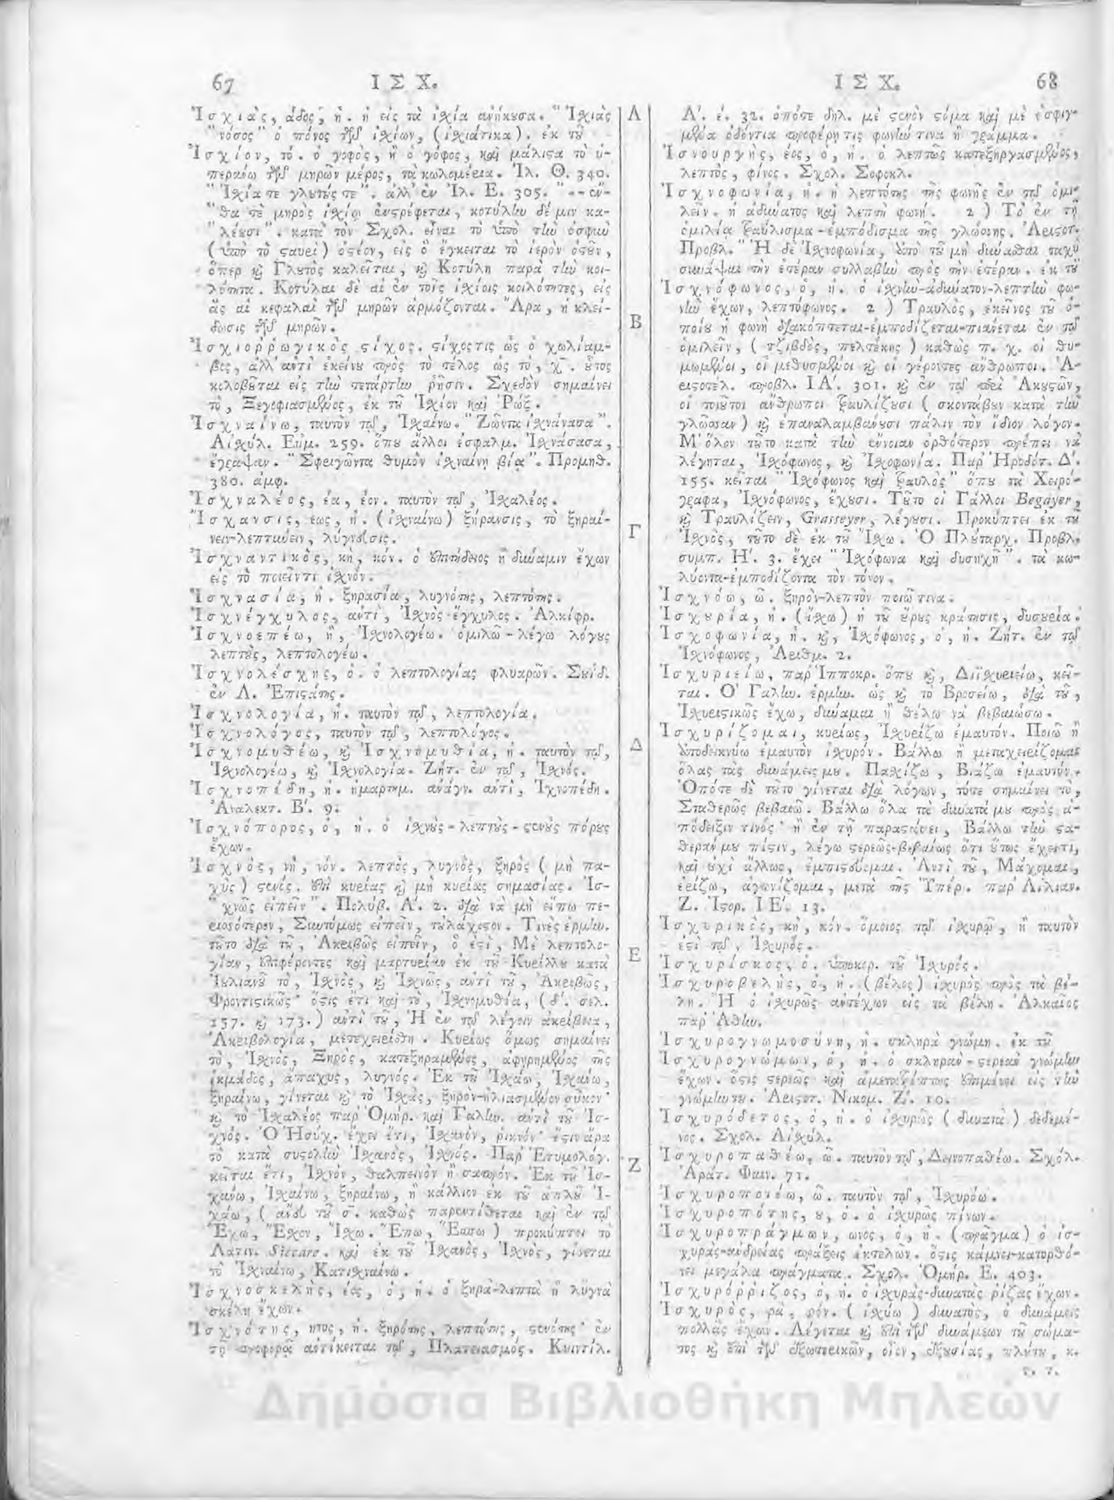 67 Ι Σ Χ.
Ἰσχιὰς, άδος, ἡ. ἡ εἰς τὰ ἰσχία ἀνήκουσα. "Ἰσχιὰς
"νόσος" ὁ πόνος τῶν ἰσχίων, (ἰσχιάτικα). ἐκ τοῦ
Ἰσχίον, τό. ὁ γοφὸς, ἢ ὁ γόφος, καὶ μάλιστα τὸ ὑ-
περάνω τῶν μηρῶν μέρος, τὰ κωλομέρια. Ἰλ. Θ. 340.
"Ἰσχία τε γλουτούς τε". ἀλλ' ἐν Ἰλ. Ε. 305. "--ἔν-
"θα τε μηρὸς ἰσχίῳ ἐνστρέφεται, κοτύλην δέ μιν κα-
"λέουσι". κατὰ τὸν Σχολ. εἶναι τὸ ὑπὸ τὴν ὀσφὺν
ὀστέον, εἰς ὃ ἔγκειται τὸ ἱερὸν ὀστοῦν,
ὅπερ καὶ Γλουτὸς καλεῖται, καὶ Κοτύλη παρὰ τὴν κοι-
λότητα. Κοτύλαι δὲ αἱ ἐν τοῖς ἰσχίοις κοιλότητες, εἰς
ἃς αἱ κεφαλαὶ τῶν μηρῶν ἁρμόζονται. Ἄρα, ἡ κλεί-
δωσις τῶν μηρῶν.
Ἰσχιορρωγικὸς στίχος. στίχος τις ὡς ὁ χωλίαμ-
βος, ἀλλ' ἀντὶ ἐκείνου πρὸς τὸ τέλος ὡς τὸ, οὗτος
κολοβοῦται εἰς τὴν τετάρτην ῥῆσιν. Σχεδὸν σημαίνει
τὸ, Ξεγοφιασμένος, ἐκ τοῦ Ἰσχίον καὶ Ῥώξ.
Ἰσχναίνω, ταυτὸν τῷ, Ἰσχαίνω. "Ζῶντα ἰσχνάνασα".
Αἰσχύλ. Εὐμ. 259. ὅπου ἄλλοι ἐσφαλμ. Ἰσχνάσασα,
ἔγραψαν. "Σφριγῶντα θυμὸν ἰσχναίνῃ βίᾳ". Προμηθ.
380. ἀμφ.
Ἰσχναλέος, έα, έον. ταυτὸν τῷ, Ἰσχαλέος.
Ἴσχανσις, εως, ἡ. (ἰσχναίνω) ξήρανσις, τὸ ξηραί-
νειν-λεπτύνειν, λύγνισις.
Ἰσχναντικὸς, κὴ, κόν. ὁ ἐπιτήδειος ἢ δύναμιν ἔχων
εἰς τὸ ποιεῖν τι ἰσχνόν.
Ἰσχνασία, ἡ. ξηρασία, λυγνότης, λεπτότης.
Ἰσχνέγχυλος, ἀντὶ, Ἰσχνὸς-ἔγχυλος. Ἀλκίφρ.
Ἰσχνοεπέω, ἢ, Ἰσχνολογέω. ὁμιλῶ-λέγω λόγους
λεπτοὺς, λεπτολογέω.
Ἰσχνολέσχης, ὁ. ὁ λεπτολογίας φλυαρῶν. Σουΐδ.
ἐν Λ. Ἐπιστάτης.
Ἰσχνολογία, ἡ. ταυτὸν τῷ, λεπτολογία.
Ἰσχνολόγος, ταυτὸν τῷ, λεπτολόγος.
Ἰσχνομυθέω, καὶ Ἰσχνομυθία, ἡ. ταυτὸν τῷ,
Ἰσχνολογέω, καὶ Ἰσχνολογία. Ζήτ. ἐν τῷ, Ἰσχνός.
Ἰσχνοπέδη, ἡ. ἡμαρτημ. ἀνάγν. ἀντὶ, Ἰχνοπέδη.
Ἀναλεκτ. Β'. 9.
Ἰσχνόπορος, ὁ, ἡ. ὁ ἰσχνοὺς-λεπτοὺς-στενοὺς πόρους
ἔχων.
Ἰσχνὸς, νὴ, νόν. λεπτὸς, λυγνὸς, ξηρὸς (μὴ πα-
χὺς) στενός. ἐπὶ κυρίας καὶ μὴ κυρίας σημασίας. Ἰσ-
"χνῶς εἰπεῖν". Πολύβ. Α'. 2. διὰ νὰ μὴ εἴπω πε-
ρισσότερον, Συντόμως εἰπεῖν, τοὐλάχιστον. Τινὲς ἑρμην.
τοῦτο διὰ τοῦ, Ἀκριβῶς εἰπεῖν, ὅ ἐστι, Μὲ λεπτολο-
γίαν, ἐπιφέροντες καὶ μαρτυρίαν ἐκ τοῦ Κυρίλλου κατὰ
Ἰουλιανοῦ τὸ, Ἰσχνὸς, καὶ Ἰσχνῶς, ἀντὶ τοῦ, Ἀκριβῶς,
Φροντιστικῶς· ὅστις ἔτι καὶ τὸ, Ἰσχνομυθία, (δ'. σελ.
157. καὶ 173.) ἀντὶ τοῦ, Ἡ ἐν τῷ λέγειν ἀκρίβεια,
Ἀκριβολογία, μετεχειρίσθη. Κυρίως ὅμως σημαίνει
τὸ, Ἰσχνὸς, Ξηρὸς, κατεξηραμμένος, ἀφῃρημένος τῆς
ἰκμάδος, ἄπαχυς, λυγνός. Ἐκ τοῦ Ἰσχάω, Ἰσχαίω,
ξηραίνω, γίνεται καὶ τὸ Ἰσχὰς, ξηρὸν-ἡλιασμένον σῦκον·
καὶ τὸ Ἰσχαλέος παρ' Ὁμήρ. καὶ Γαλην. ἀντὶ τοῦ Ἰσ-
χνός. Ὁ Ἡσύχ. ἔχει ἔτι, Ἰσχανὸν, ῥικνόν· ἔστιν ἄρα
τὸ κατὰ συστολὴν Ἰσχανὸς, Ἰσχνός. Παρ' Ἐτυμολόγ.
κεῖται ἔτι, Ἰσχνὸν, θαλπεινὸν ἢ σαπρόν. Ἐκ τοῦ Ἰσ-
χάνω, Ἰσχαίνω, ξηραίνω, ἢ κάλλιον ἐκ τοῦ ἁπλοῦ Ἰ-
χάω, (ἄνευ τοῦ σ. καθὼς παρεντίθεται καὶ ἐν τῷ
Ἔχω, Ἔσχον, Ἴσχω. Ἔπω, Ἔσπω) προκύπτει τὸ
Λατιν. Siccare. καὶ ἐκ τοῦ Ἰσχανὸς, Ἰσχνὸς, γίνεται
τὸ Ἰσχναίνω, Κατισχναίνω.
Ἰσχνοσκελὴς, έος, ὁ, ἡ. ὁ ξηρὰ-λεπτὰ ἢ λυγνὰ
σκέλη ἔχων.
Ἰσχνότης, ητος, ἡ. ξηρότης, λεπτότης, στενότης· ἐν
τῇ προφορᾷ ἀντίκειται τῷ, Πλατειασμός. Κυιντίλ.
Α
Β
Γ
Δ
Ε
Ζ
Ι Σ Χ. 68
Α'. έ. 32. ὁπότε δηλ. μὲ στενὸν στόμα καὶ μὲ ἐσφιγ-
μένα ὀδόντια προφέρῃ τις φωνήν τινα ἢ γράμμα.
Ἰσνουργὴς, έος, ὁ, ἡ. ὁ λεπτῶς κατεξηργασμένος,
λεπτὸς, φίνος. Σχολ. Σοφοκλ.
Ἰσχνοφωνία, ἡ. ἡ λεπτότης τῆς φωνῆς ἐν τῷ ὁμι-
λεῖν. ἡ ἀδύνατος καὶ λεπτὴ φωνή. 2) Τὸ ἐν τῇ
ὁμιλίᾳ τραύλισμα-ἐμπόδισμα τῆς γλώσσης. Ἀριστοτ.
Προβλ. "Ἡ δὲ Ἰσχνοφωνία, ἀπὸ τοῦ μὴ δύνασθαι ταχὺ
συνάψαι τὴν ἑτέραν συλλαβὴν πρὸς τὴν ἑτέραν. ἐκ τοῦ
Ἰσχνόφωνος, ὁ, ἡ. ὁ ἰσχνὴν-ἀδύνατον-λεπτὴν φω-
νὴν ἔχων, λεπτόφωνος. 2) Τραυλὸς, ἐκεῖνος τοῦ ὁ-
ποίου ἡ φωνὴ διακόπτεται-ἐμποδίζεται-πιάνεται ἐν τῷ
ὁμιλεῖν, (τζιβδὸς, πελτέκης) καθὼς π. χ. οἱ θυ-
μωμένοι, οἱ μεθυσμένοι καὶ οἱ γέροντες ἄνθρωποι. Ἀ-
ριστοτέλ. προβλ. ΙΑ'. 301. καὶ ἐν τῷ περὶ Ἀκουστῶν,
οἱ τοιοῦτοι ἄνθρωποι τραυλίζουσι (σκοντάβουν κατὰ τὴν
γλῶσσαν) καὶ ἐπαναλαμβάνουσι πάλιν τὸν ἴδιον λόγον.
Μ' ὅλον τοῦτο κατὰ τὴν ἔννοιαν ὀρθότερον πρέπει νὰ
λέγηται, Ἰσχόφωνος, καὶ Ἰσχοφωνία. Παρ' Ἡροδότ. Δ'.
155. κεῖται "Ἰσχόφωνος καὶ τραυλὸς" ὅπου τὰ Χειρό-
γραφα, Ἰσχνόφωνος, ἔχουσι. Τοῦτο οἱ Γάλλοι Begayer,
καὶ Τραυλίζειν, Grasseyer, λέγουσι. Προκύπτει ἐκ τοῦ
Ἰσχνὸς, τοῦτο δὲ ἐκ τοῦ Ἴσχω. Ὁ Πλούταρχ. Προβλ.
συμπ. Η'. 3. ἔχει "Ἰσχόφωνα καὶ δυσηχῆ". τὰ κω-
λύοντα-ἐμποδίζοντα τὸν τόνον.
Ἰσχνόω, ῶ. ξηρὸν-λεπτὸν ποιῶ τινα.
Ἰσχουρία, ἡ. (ἴσχω) ἡ τοῦ οὔρου κράτησις, δυσουρία.
Ἰσχοφωνία, ἡ. καὶ, Ἰσχόφωνος, ὁ, ἡ. Ζήτ. ἐν τῷ
Ἰσχνόφωνος, Ἀριθμ. 2.
Ἰσχυριείω, παρ' Ἱπποκρ. ὅπου καὶ, Διϊσχυριείω, κεῖ-
ται. Ὁ Γαλην. ἑρμην. ὡς καὶ τὸ Βρωσείω, διὰ τοῦ,
Ἰσχυριστικῶς ἔχω, δύναμαι ἢ θέλω νὰ βεβαιώσω.
Ἰσχυρίζομαι, κυρίως, Ἰσχυρίζω ἐμαυτόν. Ποιῶ ἢ
ἀποδεικνύω ἐμαυτὸν ἰσχυρόν. Βάλλω ἢ μεταχειρίζομαι
ὅλας τὰς δυνάμεις μου. Πασχίζω, Βιάζω ἐμαυτόν.
Ὁπότε δὲ τοῦτο γίνεται διὰ λόγων, τότε σημαίνει τὸ,
Σταθερῶς βεβαιῶ. Βάλλω ὅλα τὰ δυνατά μου πρὸς ἀ-
πόδειξίν τινος· ἢ ἐν τῇ παραστάσει, Βάλλω τὴν στα-
θεράν μου πίστιν, λέγω στερεῶς-βεβαίως ὅτι οὕτως ἔχει τι,
καὶ οὐχὶ ἄλλως, ἐμπιστεύομαι. Ἀντὶ τοῦ, Μάχομαι,
ἐρίζω, ἀγωνίζομαι, μετὰ τῆς Ὑπέρ. παρ' Αἰλιαν.
Ζ. Ἱστορ. ΙΕ'. 13.
Ἰσχυρικὸς, κὴ, κόν. ὅμοιος τῷ ἰσχυρῷ, ἢ ταυτὸν
ἐστὶ τῷ, Ἰσχυρός.
Ἰσχυρίσκος, ὁ. ὑποκορ. τοῦ Ἰσχυρός.
Ἰσχυροβελὴς, ὁ, ἡ. (βέλος) ἰσχυρὸς πρὸς τὰ βέ-
λη. Ἢ ὁ ἰσχυρῶς ἀντέχων εἰς τὰ βέλη. Ἀλκαῖος
παρ' Ἀθην.
Ἰσχυρογνωμοσύνη, ἡ. σκληρὰ γνώμη. ἐκ τοῦ
Ἰσχυρογνώμων, ὁ, ἡ. ὁ σκληρὰν-στερεὰν γνώμην
ἔχων. ὅστις στερεῶς καὶ ἀμετατρέπτως ἐπιμένει εἰς τὴν
γνώμην του. Ἀριστοτ. Νικομ. Ζ'. 10.
Ἰσχυρόδετος, ὁ, ἡ. ὁ ἰσχυρῶς (δυνατὰ) δεδεμέ-
νος. Σχολ. Αἰσχύλ.
Ἰσχυροπαθέω, ῶ. ταυτὸν τῷ, Δεινοπαθέω. Σχόλ.
Ἀράτ. Φαιν. 71.
Ἰσχυροποιέω, ῶ. ταυτὸν τῷ, Ἰσχυρόω.
Ἰσχυροπότης, ου, ὁ. ὁ ἰσχυρῶς πίνων.
Ἰσχυροπράγμων, ωνος, ὁ, ἡ. (πρᾶγμα) ὁ ἰσ-
χυρὰς-ἀνδρείας πράξεις ἐκτελῶν. ὅστις κάμνει-κατορθό-
νει μεγάλα πράγματα. Σχολ. Ὁμήρ. Ε. 403.
Ἰσχυρόρριζος, ὁ, ἡ. ὁ ἰσχυρὰς-δυνατὰς ῥίζας ἔχων.
Ἰσχυρὸς, ρὰ, ρόν. (ἰσχύω) δυνατὸς, ὁ δυνάμεις
πολλὰς ἔχων. Λέγεται καὶ ἐπὶ τῶν δυνάμεων τοῦ σώμα-
τος καὶ ἐπὶ τῶν ἐξωτερικῶν, οἷον, ἐξουσίας, πλούτου, κ.
τ. λ.
Δημόσια Βιβλιοθήκη Μηλεών